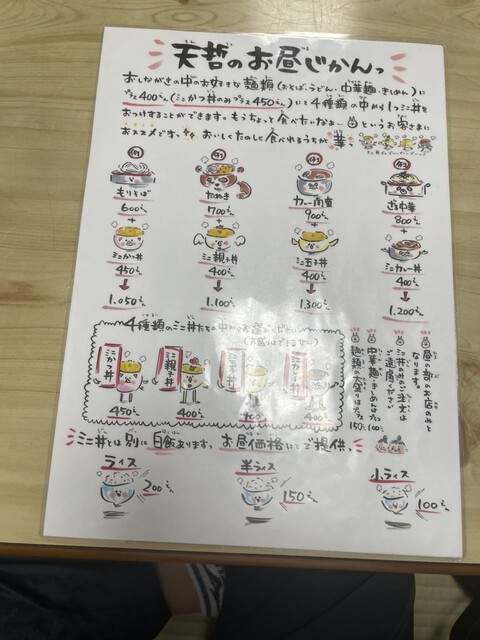 天哲のお昼じかんっ
おしながきの中のお好きな麺類(おそば・うどん・中華麺・きしめん)に
プラス400えん(ミニかつ丼のみプラス450えん)にて4種類の中から1つミニ丼を
おつけすることができます。もうちょっと食べたいなぁ…というお客さまに
おススメです。おいしくたのしく食べれるうちが華
例1 例2 例3 例4
もりそば たぬき カレー南蛮 中華
600えん 700えん 900えん 800えん
+ + + +
ミニかつ丼 ミニ親子丼 ミニ玉子丼 ミニカレー丼
450えん 400えん 400えん 400えん
↓ ↓ ↓ ↓
1.050えん 1.100えん 1.300えん 1.200えん
4種類のミニ丼たちの中から
ミニかつ丼 ミニ親子丼 ミニカレー丼
450えん 400えん 400えん
昼の部のお店のみと
なります。
ミニ丼のみのご注文は
ご遠慮ください
中華麺・きしめんはプラス100えん
麺類の大盛りはプラス150えん
ミニ丼とは別に白飯あります。お昼価格にてご提供。
ライス 半ライス 小ライス
200えん 150えん 100えん